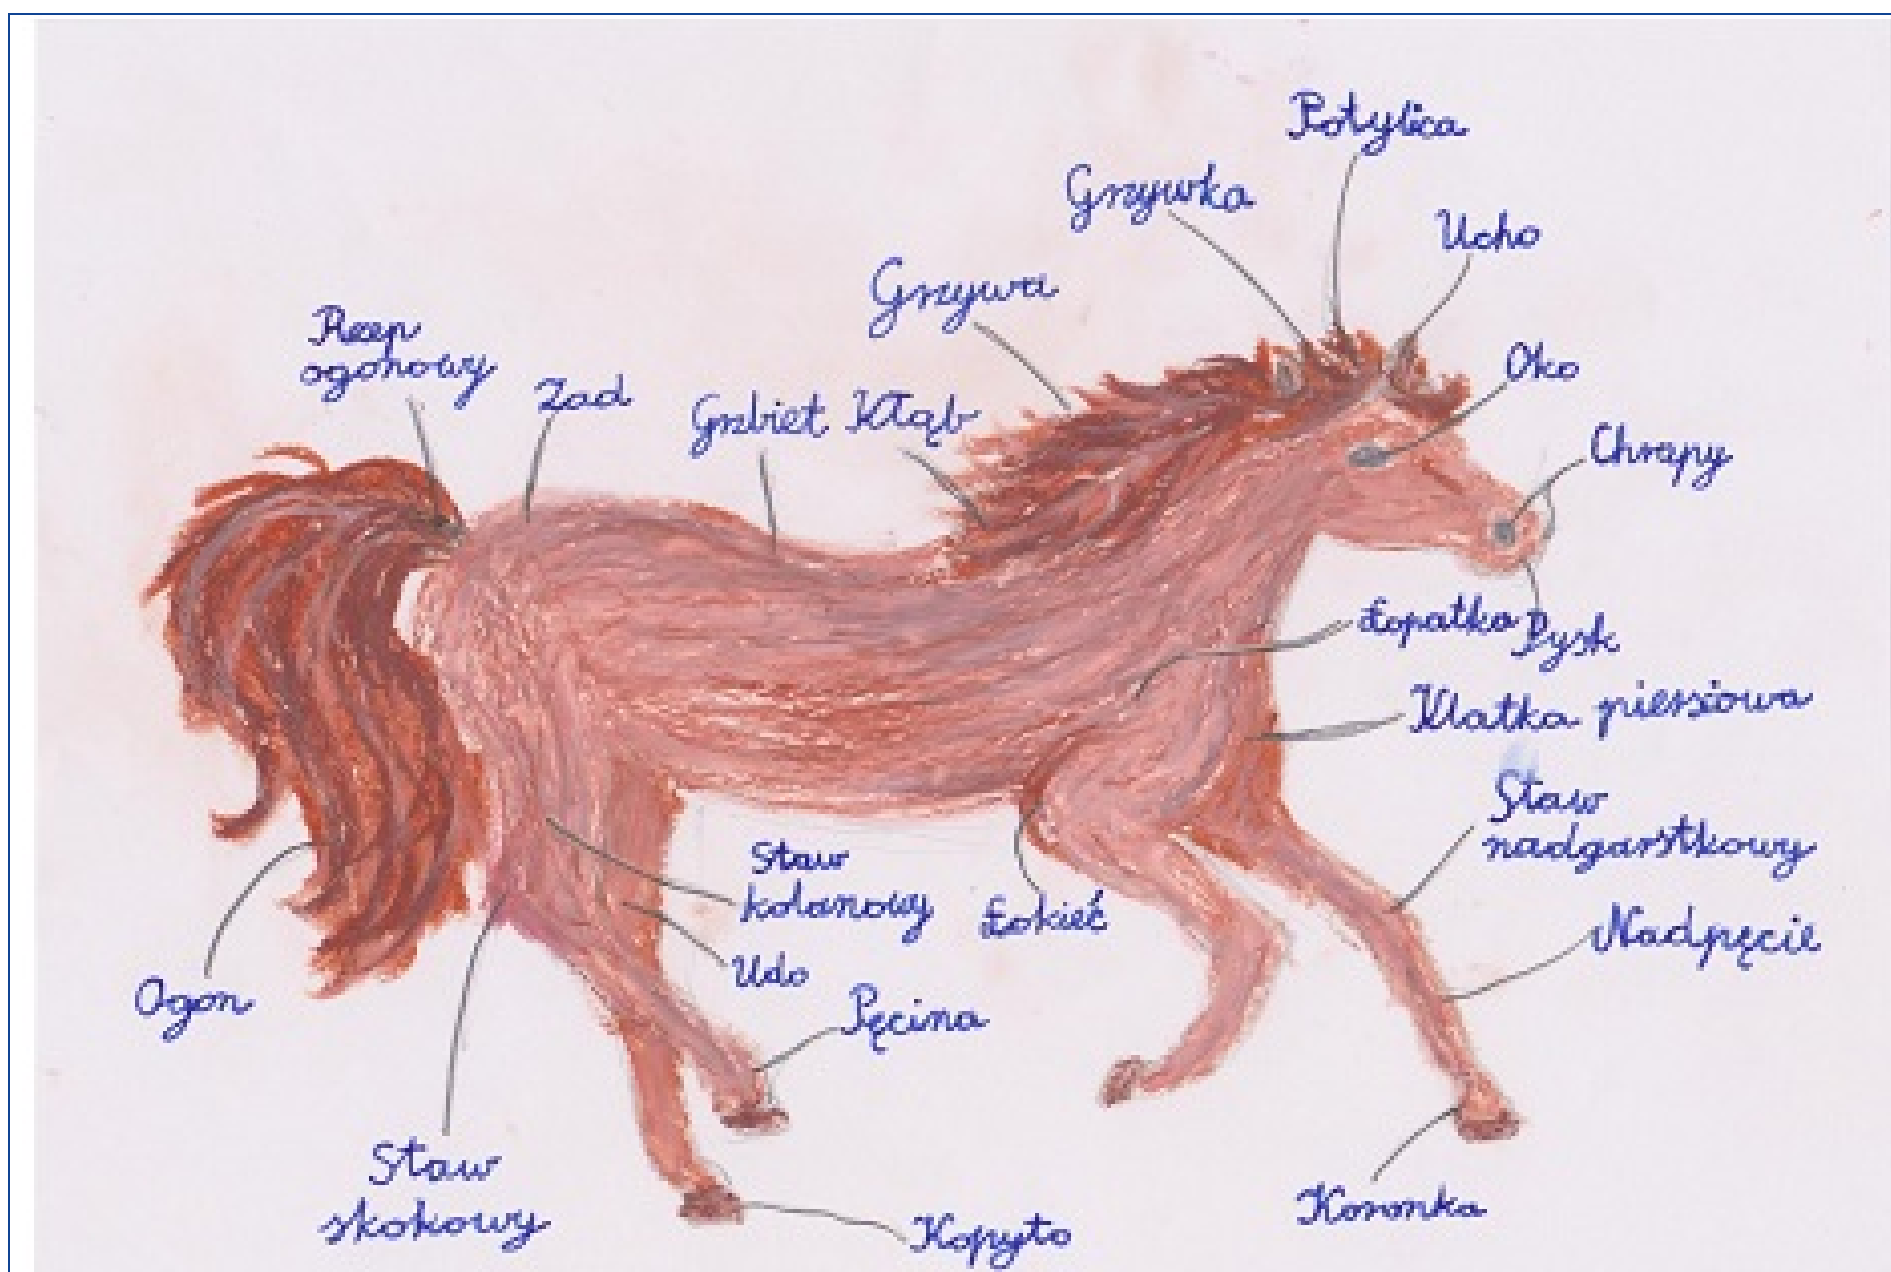 Potylica
Grzywka
Ucho
Grzywa
Rzep
ogonowy
Oko
Zad
Grzbiet
Kłąb
Chrapy
Łopatka
Pysk
Klatka piersiowa
Staw
nadgarstkowy
Staw
kolanowy
Łokieć
Nadpęcie
Udo
Ogon
Pęcina
Staw
skokowy
Koronka
Kopyto